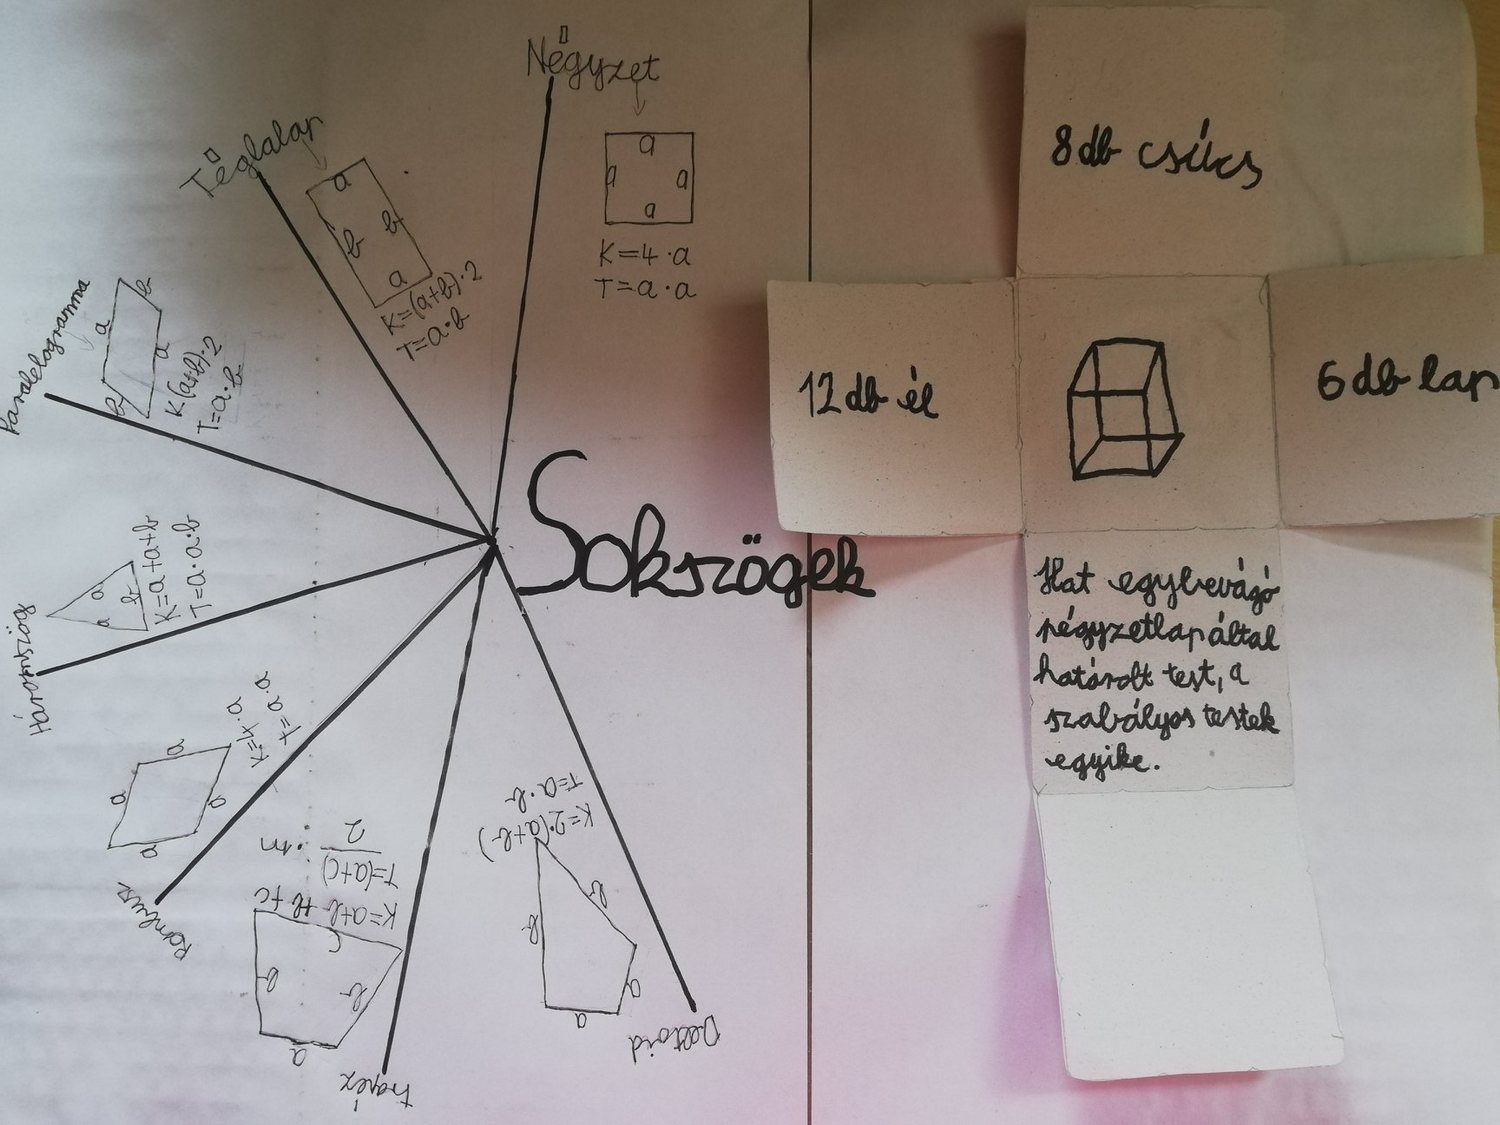 Négyzet
a
a
a
a
K=4·a
T=a·a
Téglalap
a
b
b
a
K=(a+b)·2
T=a·b
Paralelogramma
b
a
a
b
K(a+b)·2
T=a·b
Háromszög
a
b
a
K=a+a+b
T=a·a·b
Rombusz
a
a
a
a
K=4·a
T=a·a
trapéz
a
b
b
c
K=a+b+b+c
T=(a+c)
2
·m
Deltoid
a
a
b
b
K=2·(a+b)
T=a·b
Sokszögek
8 db csúcs
12 db él
6 db lap
Hat egybevágó
négyzetlap által
határolt test, a
szabályos testek
egyike.